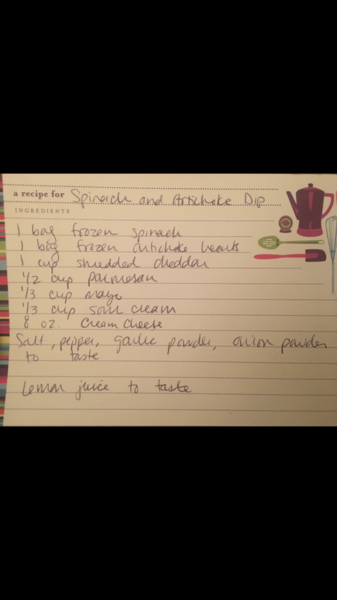 a recipe for Spinach and Artichoke Dip
INGREDIENTS
1 bag frozen spinach
1 bag frozen artichoke hearts
1 cup shredded cheddar
1/2 cup parmesan
1/3 cup mayo
1/3 cup sour cream
8 oz. cream cheese
Salt, pepper, garlic powder, onion powder
to taste
Lemon juice to taste